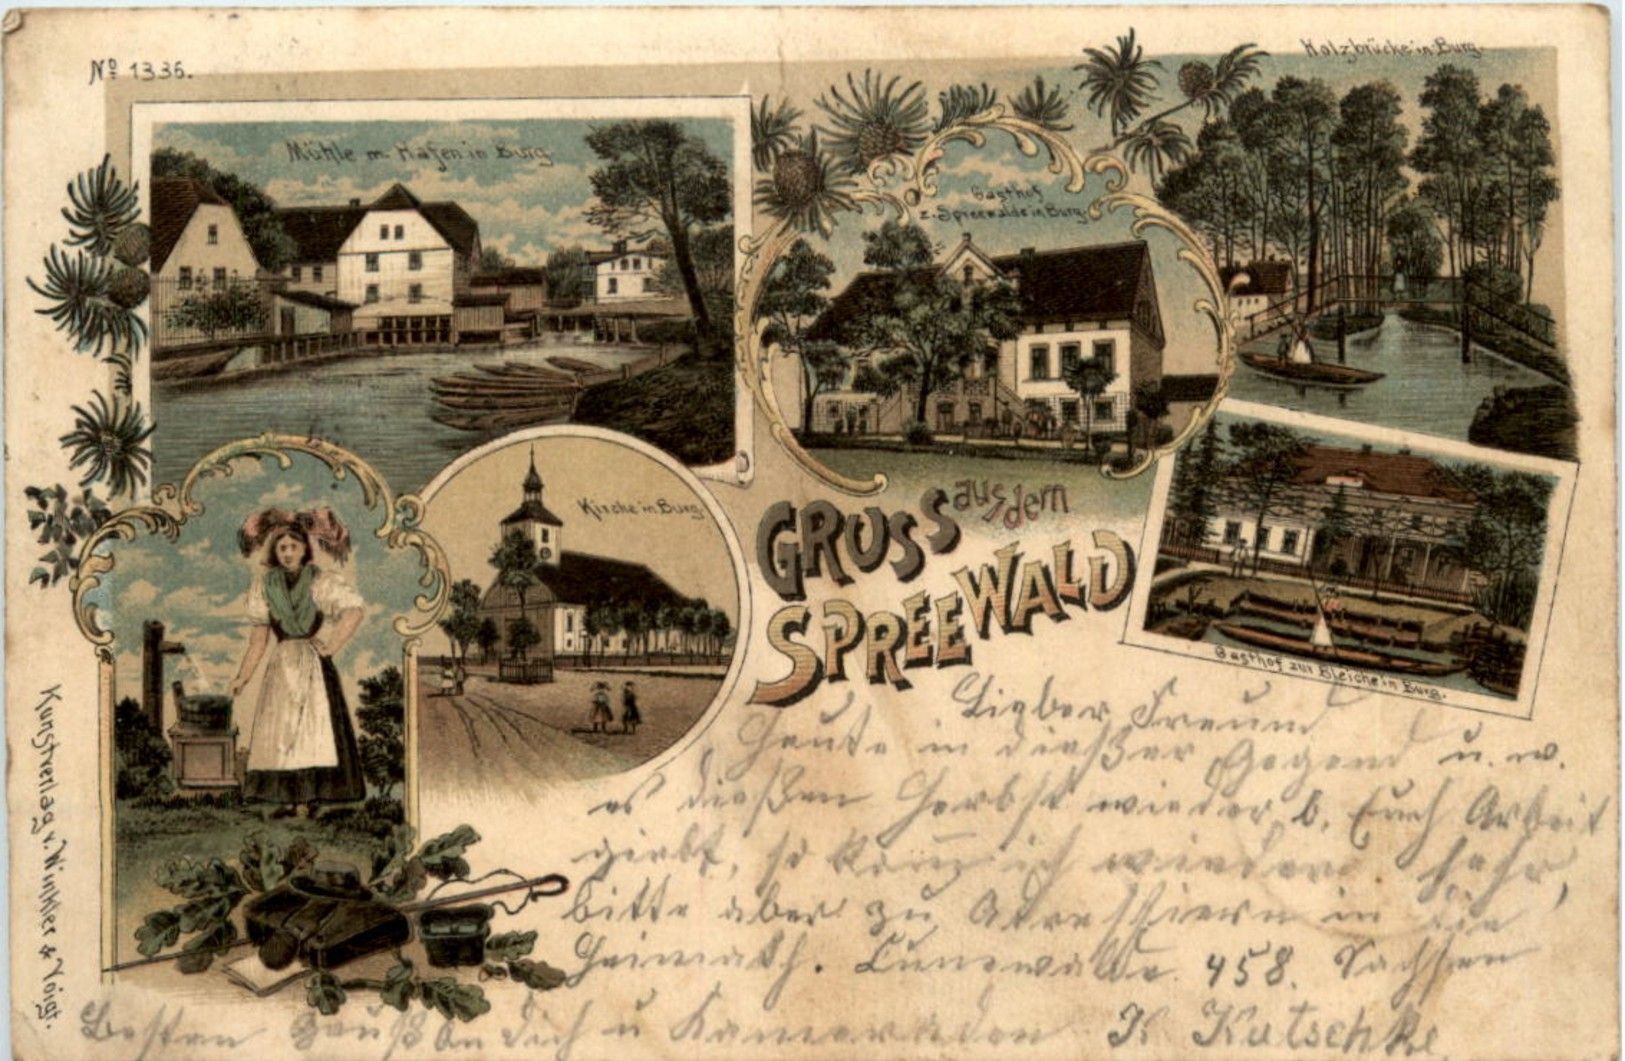 No 1336.
Mühle m. Hafen in Burg.
Gasthof
z. Spreewalde in Burg.
Holzbrücke in Burg.
Kirche in Burg.
GRUSS aus dem
SPREEWALD
Gasthof zur Bleiche in Burg.
Kunstverlag v. Winkler & Voigt.
Lieber Freund
Heute in dießer Gegend u. w.
es dießen Herbst wieder b. Euch Arbeit
giebt, so kom̅ ich wieder
bitte aber zu Adressiern in die
Heimath. Cunewalde 458. Sachsen
Besten Gruß an dich u Kameraden K Kutschke